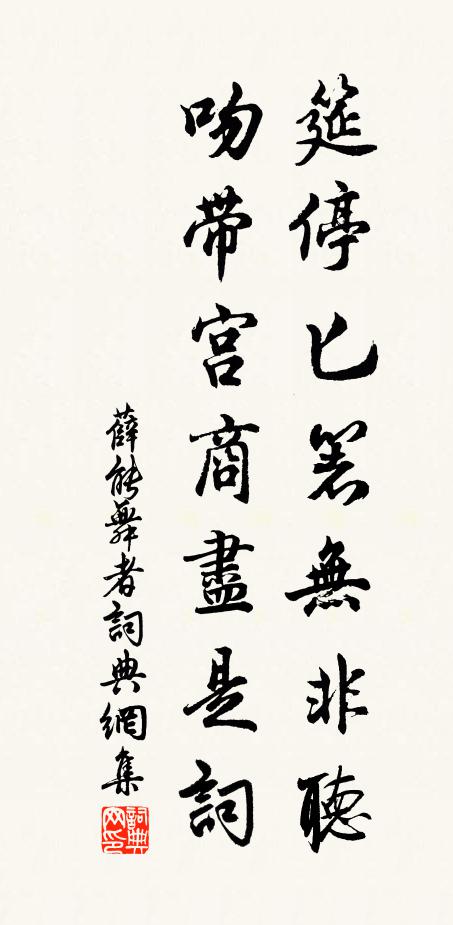 筵停匕箸無非聽
吻帶宮商盡是詞
薛能舞者詞典網集
詞典網印